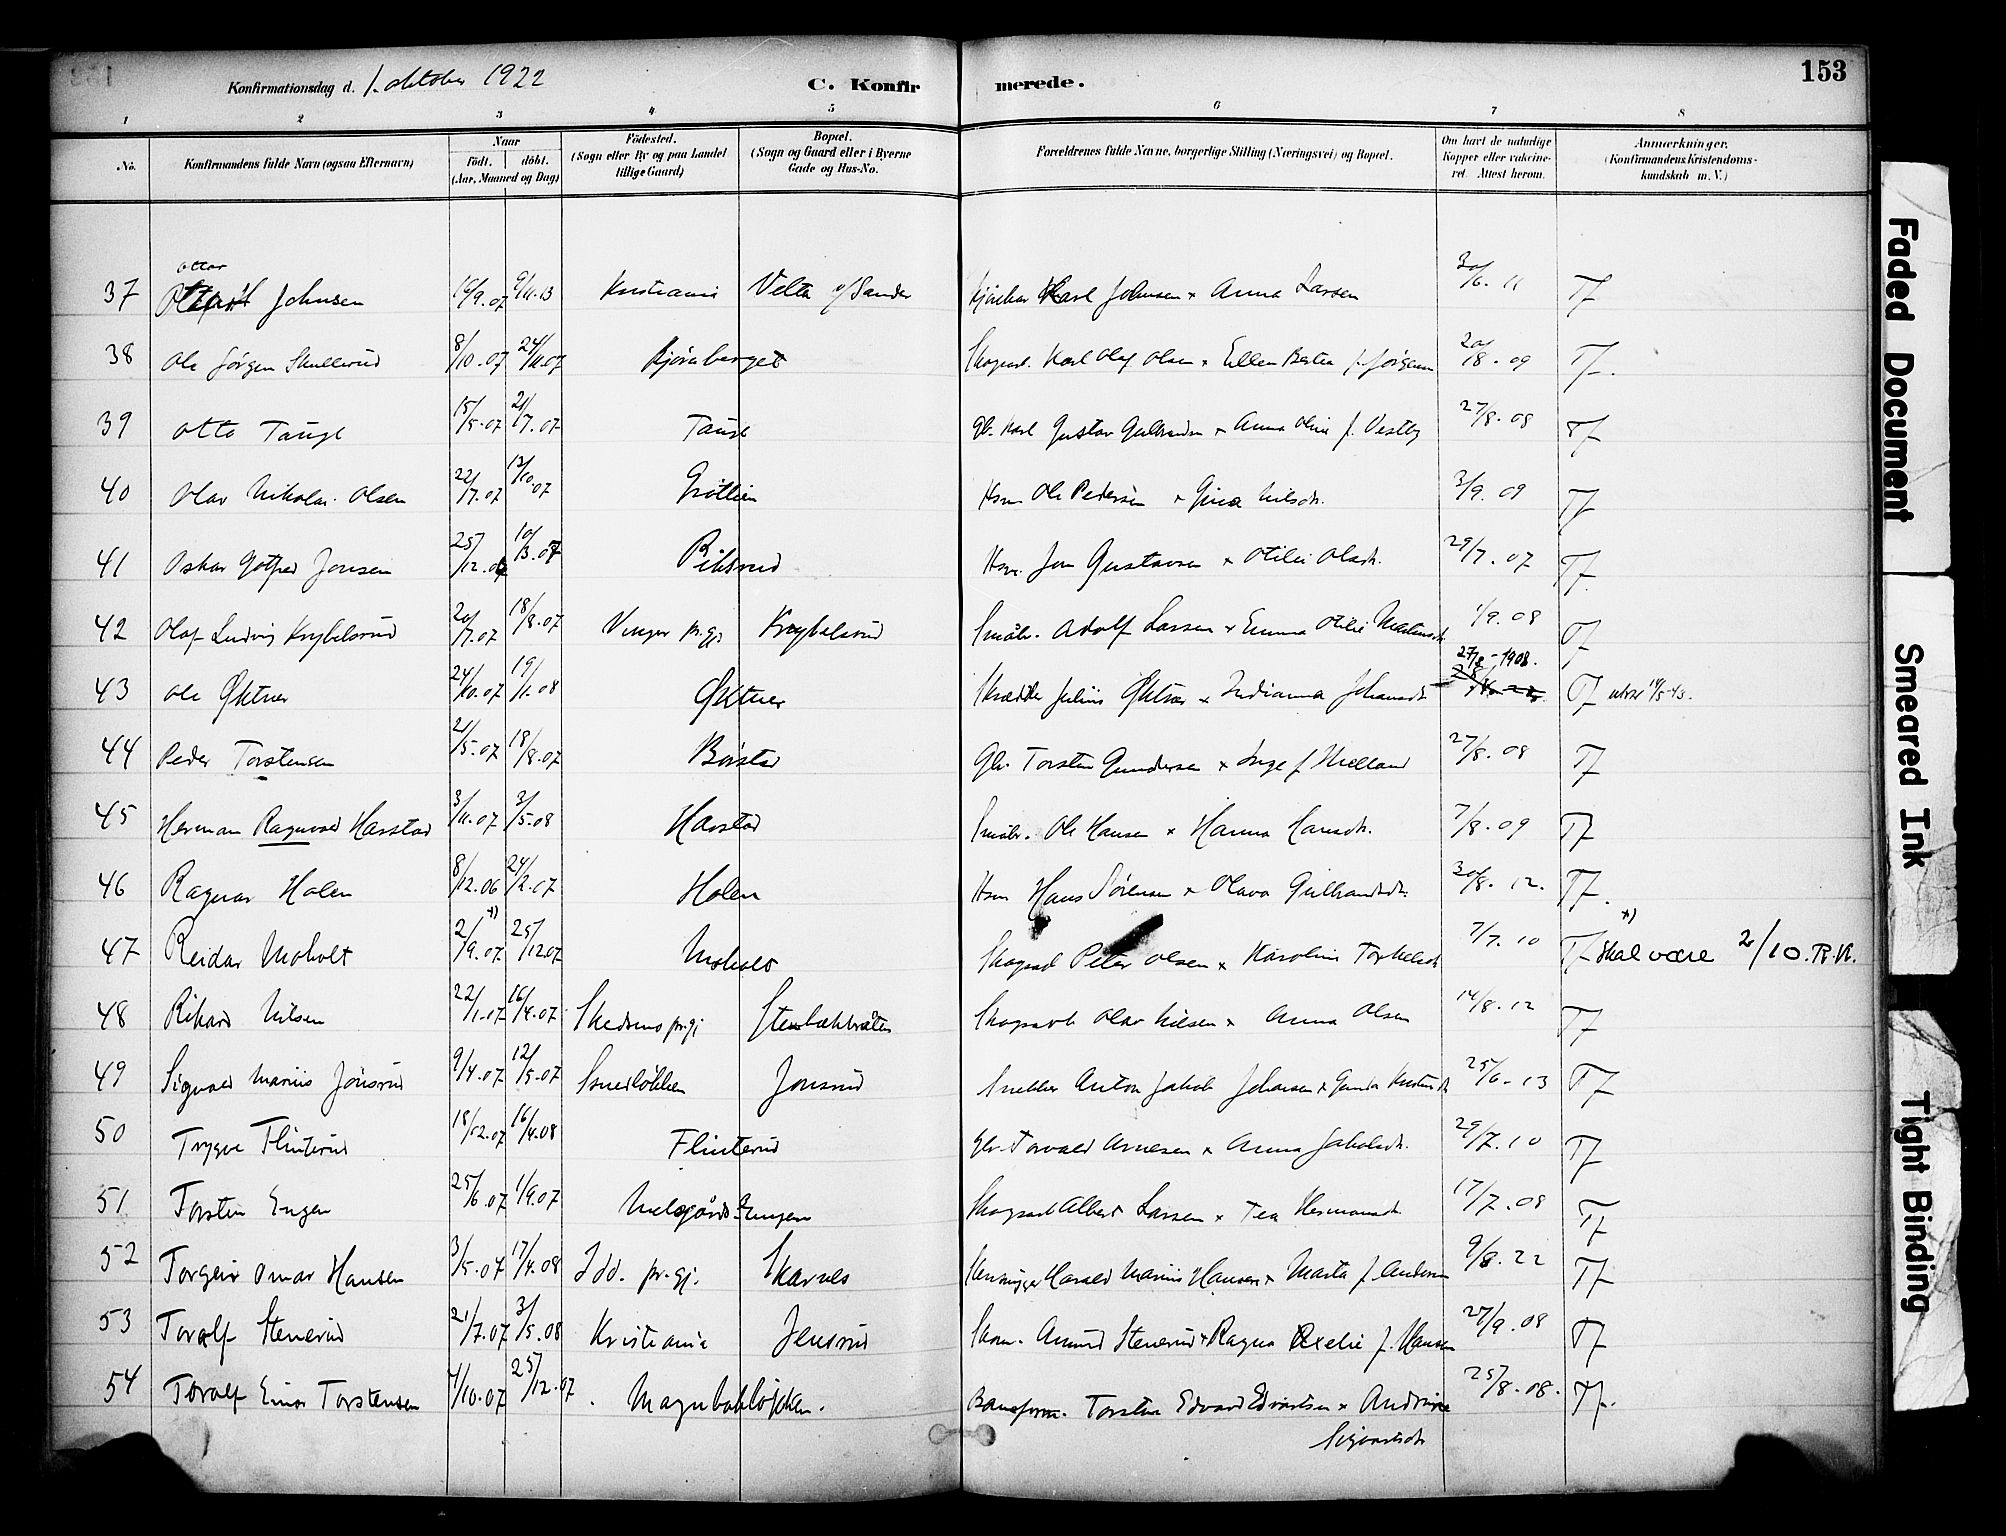 Konfirmationsdag d. 1. oktober 1922
C. Konfirmerede.
153
1 2 3 4 5 6 7 8
No.
Konfirmandens fulde Navn (ogsaa Efternavn)
Naar
födt. döbt.
(Aar, Maaned og Dag)
Födested.
(Sogn eller By og paa Landet
tillige Gaard)
Bopæl.
(Sogn og Gaard eller i Byerne
Gade og Hus-No.
Forældrenes fulde Navne, borgerlige Stilling (Næringsvei) og Bopæl.
Om havt de naturlige
Kopper eller vakcine-
ret. Attest herom.
Anmærkninger.
(Konfirmandens Kristendoms-
kundskab m. V.)
Ottar
37 Johnsen 9/11.13 Kristiania Velta v/Sander Karl Johnsen x Anna Larsen 30/6. 11 Tf
38 Ole Jørgen Skullerud 8/10.07 24/11.07 Bjørneberget Skogsarb. Karl Olaf Olsen x Ellen Bertea f. Jørgensen 20/8. 09 Tf.
39 Otto Tauge 15/5.07 21/7.07 Tauge Gbr. Karl Gustav Gulbrandsen x Anna Oline f. Vestby 27/8. 08 Tf
40 Olav Nikolai Olsen 22/7.07 13/10.07 Grøtlien Hsm Ole Pedersen x Gina Nilsdt. 3/9. 09 Tf
41 Oskar Gotfred Jonsen 25/12.06 10/3.07 Riksrud Hsm. Jon Gustavsen x Otilie Olsdt. 29/7. 07 Tf.
42 Olaf Ludvig Krybelsrud 20/7.07 18/8.07 Vinger pr.gj. Krybelsrud Småbr. Adolf Larsen x Emma Otilie Martinsdt. 1/9. 08 Tf
43 Ole Øktner 24/10.07 19/1.08 Øktner Skrædder Julius Øktner x Indianna Johansdt. 27/8-1908. Tf utvst 14/5-43.
44 Peder Torstensen 21/5.07 18/8.07 Børstad Gbr. Torsten Gundersen x Inge f. 27/8. 08 Tf
45 Herman Ragnvald Harstad 3/11.07 3/5.08 Harstad Småbr. Ole Hansen x Hanna Hansdt. 7/8. 09 Tf
46 Ragnar Holen 8/12.06 24/2.07 Holen Hsm Hans Sørensen x Olava Gulbrandsdt. 30/8. 12. Tf.
47 Reidar Moholt 2/9.07 x) 25/12 07 Moholt Skogsarb Peter Olsen x Karoline Torkelsdt 7/7. 10 Tf x) Skal være 2/10. R.K.
48 Rikard Nilsen 22/1.07 16/4.07 Skedsmo pr.gj Stenbækbråten Skogsarb Olav Nilsen x Anna Olsen 14/8. 12 Tf
49 Sigvald Marius Jonsrud 9/4.07 12/5.07 Smedløkken Jonsrud Snekker Anton Jakob Johansen x Gunda Kristiansdt 25/6-13 Tf
50 Trygve Flinterud 18/12.07 16/4.08 Flinterud Gbr. Torvald Arnesen x Anna Jakobsdt. 29/7. 10 Tf
51 Torstein Engen 25/6.07 1/9.07 Melsgårds Engen Skogsarb Albert Larsen x Tea Hermansdt. 17/7. 08 Tf
52 Torgeir Omar Hansen 3/5.07 17/4.08 Idd. pr.gj. Skarnes Harald Marius Hansen x Marta f. Andersen 9/8. 22 Tf
53 Toralf Stenerud 21/7.07 3/5.08 Kristiania Jensrud Amund Stenerud x Ragna f. Hansen 27/9. 08 Tf
54 Toralf Einar Torstensen 4/10.07 25/12.07 Magnbakløkken. Baneform. Torsten Edvard Edvardsen x Andrine 25/8. 08. Tf.
Sigvartsdt
Faded Document
Smeared Ink
Tight Binding